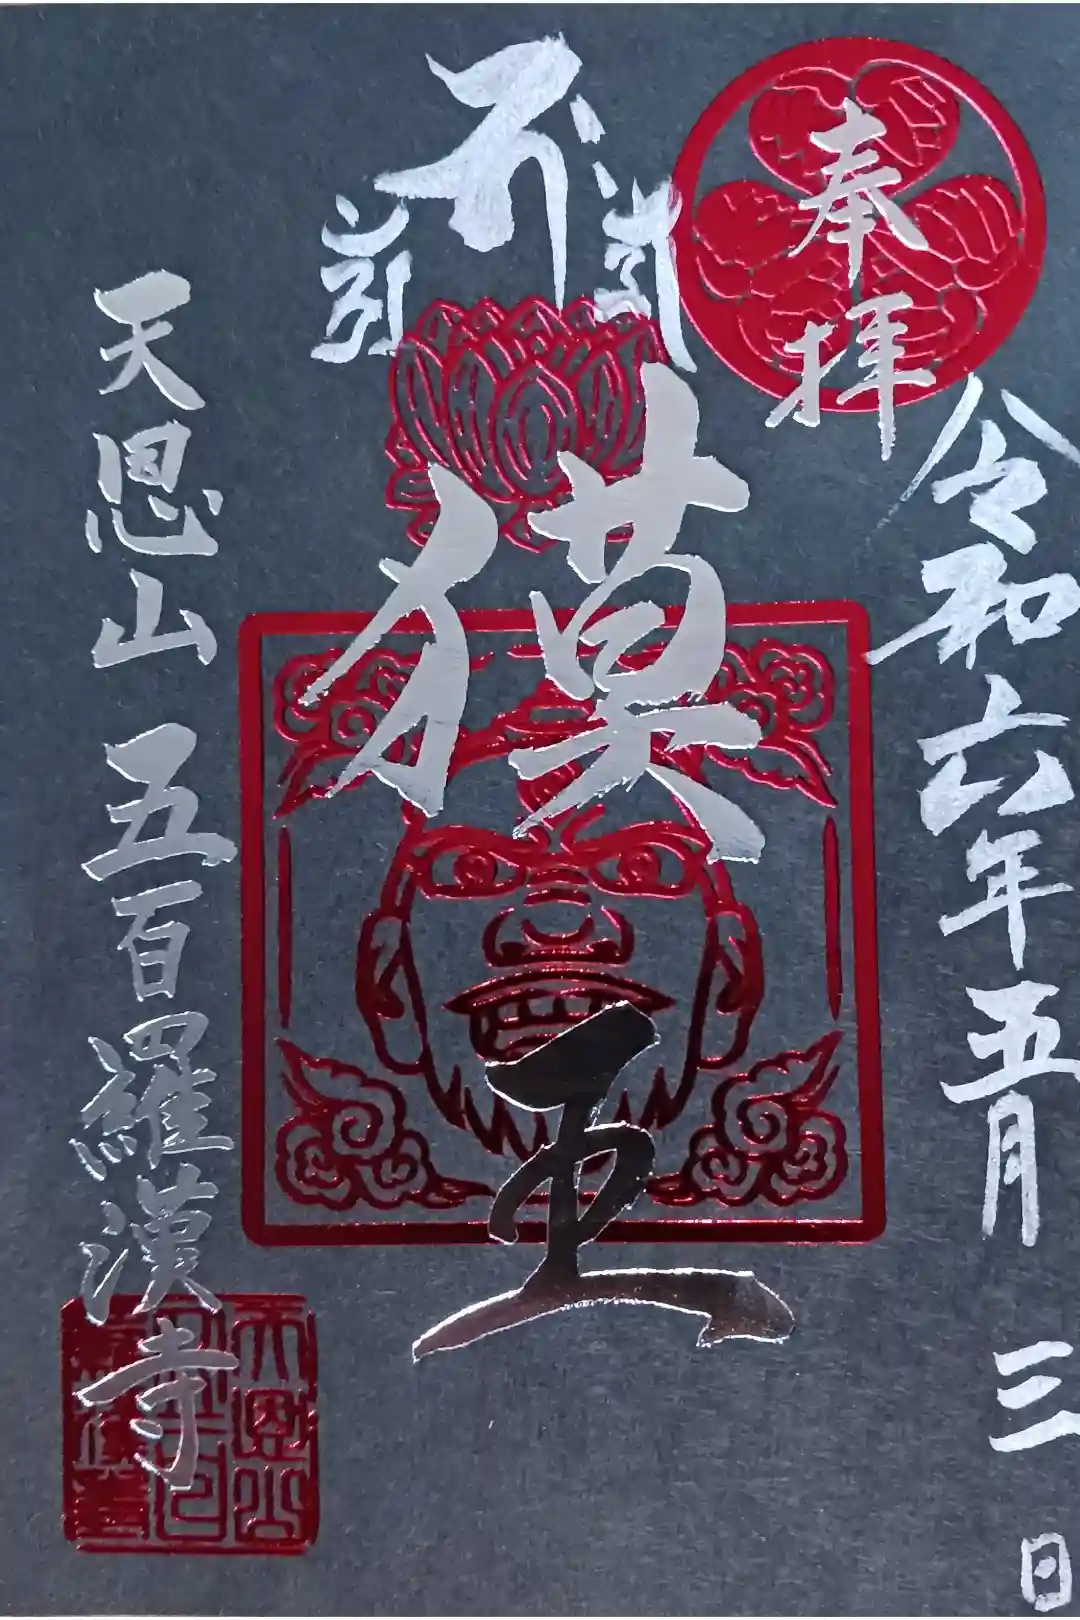 奉拝
令和六年五月三日
獏王
天恩山 五百羅漢寺